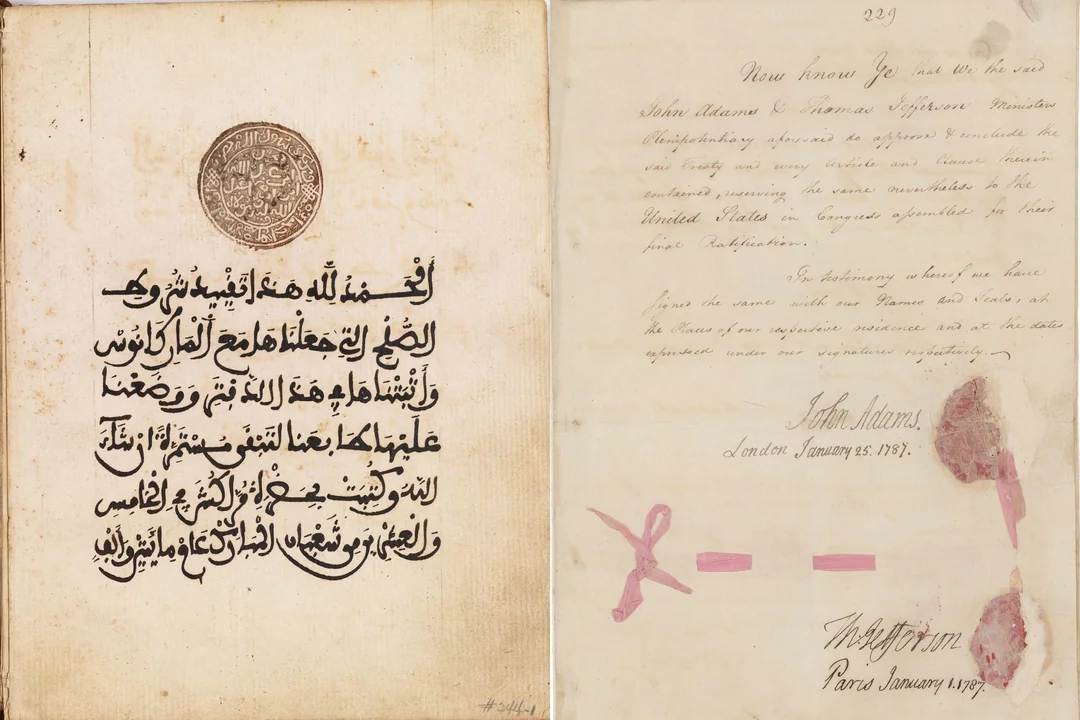 الحمد لله هذا تقييد شروط
الصلح التي جعلناها مع المار كانوس
وأثبتناها في هذا الدفتر ووضعنا
عليها طابعنا لتبقى مستمرة ان شاء
الله وكتبت بحضرة مراكش في الخامس
والعشرين من شعبان المبارك عام مايتين وألف
#244-1
229
Now know Ye that We the said
John Adams & Thomas Jefferson Ministers
Plenipotentiary aforesaid do approve & conclude the
said Treaty and every Article and Clause therein
contained, reserving the same nevertheless to the
United States in Congress assembled for their
final Ratification.
In testimony whereof we have
signed the same with our Names and Seals, at
the Places of our respective residence and at the dates
expressed under our signatures respectively.
John Adams.
London January 25. 1787.
Th: Jefferson
Paris January 1. 1787.